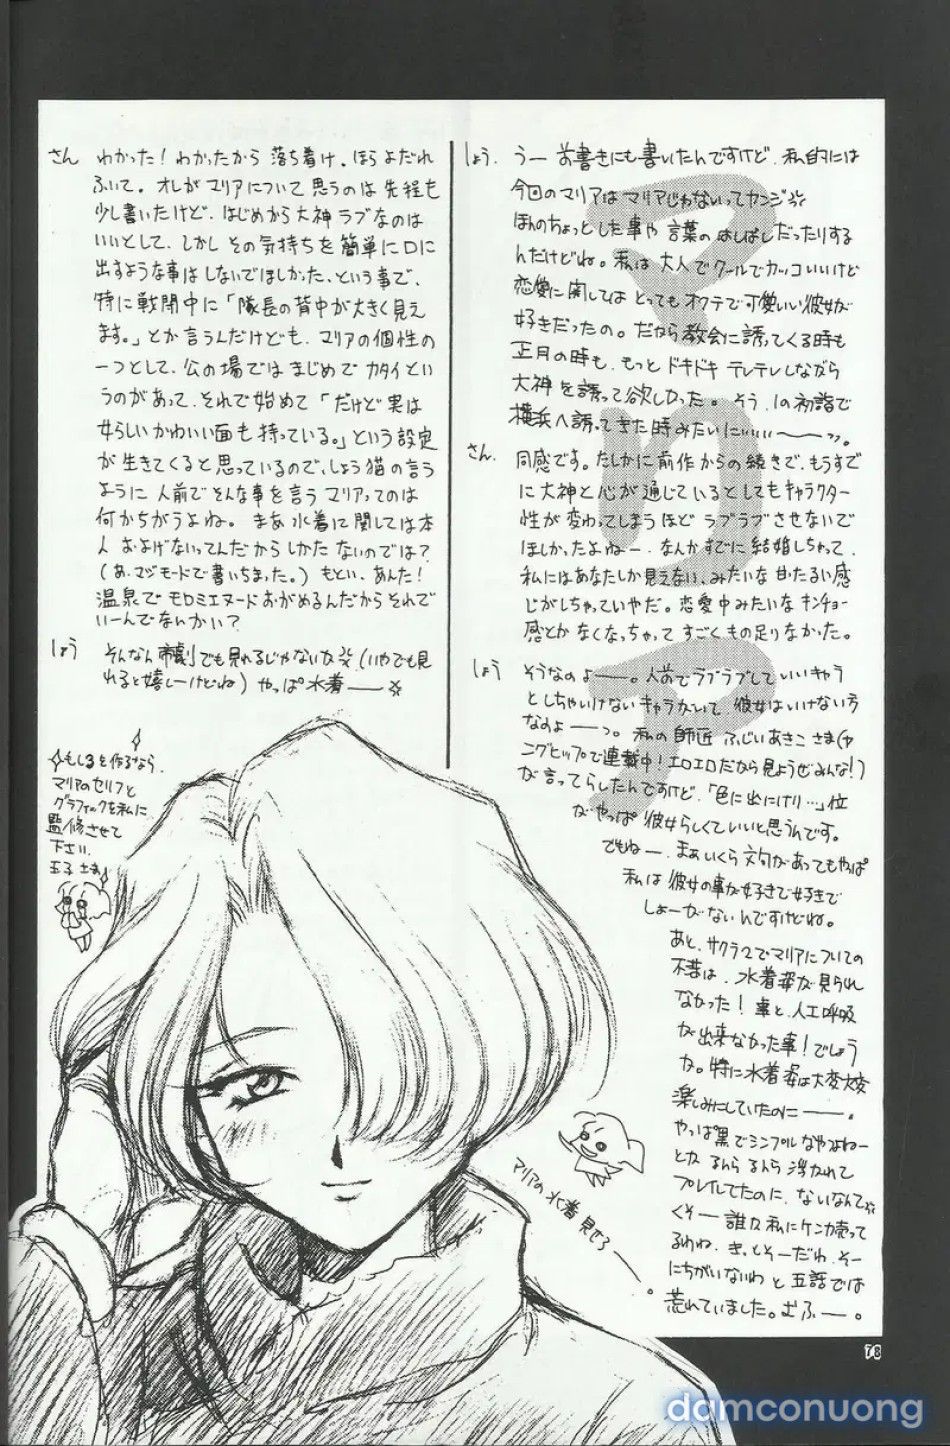 しょう. うー お書きにも書いたんですけど、私的には
今回のマリアはマリアじゃないってカンジ
ほんのちょっとした事や 言葉の はしばしだったりする
んだけどね。私は 大人でクールでカッコいいけど
恋愛に関しては とってもオクテで可愛いい彼女が
好きだったの。だから教会に誘ってくる時も
正月の時も、もっと ドキドキ テレテレしながら
大神を誘って欲しかった。そう、1の初詣で
横浜へ誘ってきた時みたいにいいい〜〜っ。
さん. 同感です。たしかに前作からの続きで、もうすで
に大神と心が通じているとしてもキャラクター
性が変わってしまうほど ラブラブさせないで
ほしかったよねー。なんかすでに結婚しちゃって、
私にはあなたしか見えない、みたいな甘たるい感
じがしちゃっていやだ。恋愛中みたいなキンチョー
感とか なくなっちゃって すごくもの足りなかった。
しょう そうなのよ――。人前でラブラブしていいキャラ
としちゃいけないキャラがいて 彼女はいけない方
なのよ――っ。私の師匠 ふじいあきこ さま(ヤ
ングヒップで連載中!エロエロだから見ようぜみんな!)
が言ってらしたんですけど、「色に出にけり…」位
がやっぱ 彼女らしくていいと思うんです。
でもねー、まぁいくら文句があってもやっぱ
私は 彼女の事が好きで好きで
しょーがないんですけどね。
あと、サクラ2でマリアについての
不満は、水着姿が見られ
なかった!事と、人工呼吸
が出来なかった事!でしょう
か。特に水着姿は大変大変
楽しみにしていたのに――。
やっぱ黒でシンプルなやつよねー
とか るんら るんら 浮かれて
プレイしてたのに、ないなんて
くそー 誰か私にケンカ売って
るわね、きっとそーだわ、そー
にちがいないわ と 五話では
荒れていました。むふー。
さん わかった!わかったから 落ち着け。ほら よだれ
ふいて。オレが マリアについて 思うのは 先程も
少し書いたけど、はじめから大神ラブなのは
いいとして、しかし その気持ちを簡単に口に
出すような事は しないでほしかった、という事で、
特に戦闘中に「隊長の背中が大きく見え
ます。」とか言うんだけども、マリアの個性の
一つとして、公の場では まじめで カタイとい
うのがあって、それで始めて「だけど実は
女らしいかわいい面も持っている。」という設定
が生きてくると思っているので、しょう猫の言う
ように 人前で そんな事を言う マリアってのは
何かちがうよね。まあ 水着に関しては本
人 およげないってんだから しかた ないのでは?
(あ、マジモードで書いちまった。) もとい、あんた!
温泉で モロミエヌード おがめるんだから それで
いーんでないかい?
しょう そんなん 市劇でも見れるじゃないか (いやでも見
れると嬉しーけどね) やっぱ水着――
もし3を作るなら、
マリアのセリフと
グラフィックを私に
監修させて
下さい
王子さま
マリアの水着見せろ――。
マリア
78
damconuong